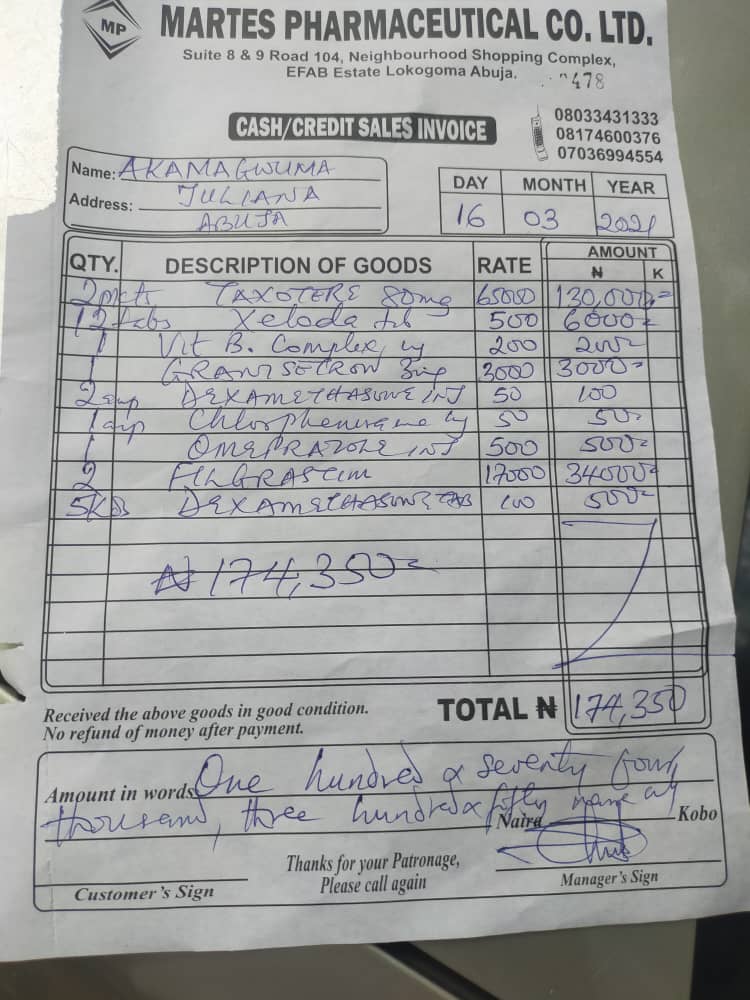 MP
MARTES PHARMACEUTICAL CO. LTD.
Suite 8 & 9 Road 104, Neighbourhood Shopping Complex,
EFAB Estate Lokogoma Abuja.
478
CASH/CREDIT SALES INVOICE
08033431333
08174600376
07036994554
Name: AKAMAGWUMA
Address: JULIANA
ABUJA
DAY MONTH YEAR
16 03 2021
QTY. DESCRIPTION OF GOODS RATE AMOUNT
₦ K
2pkts TAXOTERE 80mg 65000 130,000=
12tabs Xeloda tab 500 6000=
1 Vit B. Complex inj 200 200=
1 GRANISETRON 3mg 3000 3000=
2amp DEXAMETHASONE INJ 50 100
1amp Chlorpheniramine inj 50 50=
1 OMEPRAZOLE INJ 500 500=
2 FILGRASTIM 17000 34000=
DEXAMETHASONE TAB 100 500=
₦ 174,350=
Received the above goods in good condition.
No refund of money after payment.
TOTAL ₦ 174,350
Amount in words One hundred & seventy four
thousand, three hundred & fifty naira only
Naira Kobo
Thanks for your Patronage,
Please call again
Customer's Sign
Manager's Sign